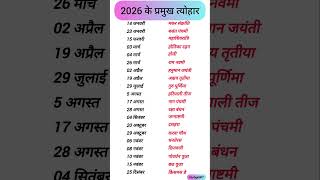 2026 के प्रमुख त्योहार
14 जनवरी मकर संक्रांति
23 जनवरी बसंत पंचमी
15 फरवरी महाशिवरात्रि
03 मार्च होलिका दहन
04 मार्च होली
26 मार्च राम नवमी
02 अप्रैल हनुमान जयंती
19 अप्रैल अक्षय तृतीया
29 जुलाई गुरु पूर्णिमा
5 अगस्त हरियाली तीज
17 अगस्त नाग पंचमी
28 अगस्त रक्षा बंधन
04 सितंबर जन्माष्टमी
20 अक्टूबर दशहरा
29 अक्टूबर करवा चौथ
06 नवंबर धनतेरस
08 नवंबर दिपावली
10 नवंबर गोवर्धन पूजा
15 नवंबर छठ पूजा
25 दिसंबर क्रिसमस डे
26 मार्च
02 अप्रैल जयंती
19 अप्रैल तृतीया
29 जुलाई पूर्णिमा
5 अगस्त तीज
17 अगस्त पंचमी
28 अगस्त
04 सितंबर